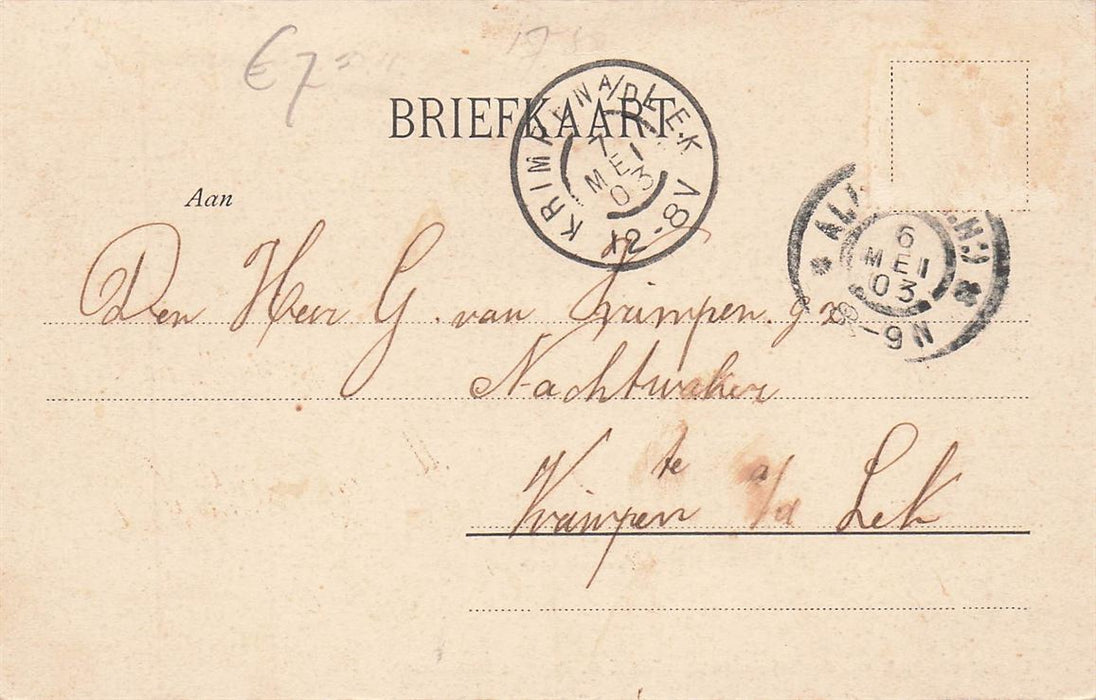 € 7=
BRIEFKAART
KRIMPEN A/D LEK
7
MEI
03
12-8V
Aan
6
MEI
03
8-9N
Den Heer G. van Krimpen. gz
Nachtwaker
te
Krimpen a/d Lek